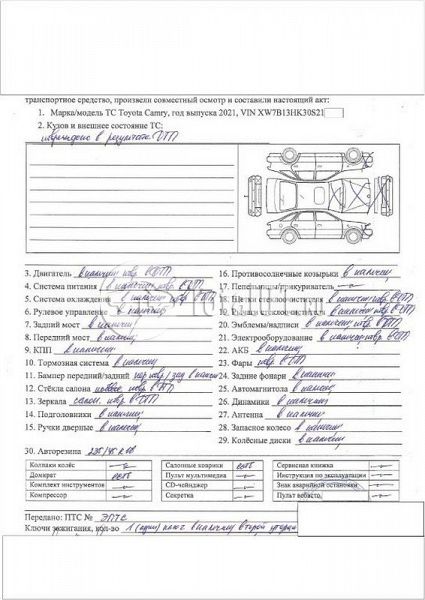 транспортное средство, произвели совместный осмотр и составили настоящий акт:
1. Марка/модель ТС Toyota Camry, год выпуска 2021, VIN XW7B13HK30S21
2. Кузов и внешнее состояние ТС:
повреждено в результате ДТП
3. Двигатель в наличии повр. в ДТП
4. Система питания в наличии повр. в ДТП
5. Система охлаждения в наличии повр. в ДТП
6. Рулевое управление в наличии
7. Задний мост в наличии
8. Передний мост в наличии
9. КПП в наличии
10. Тормозная система в наличии
11. Бампер передний/задний пер повр / зад в наличии
12. Стёкла салона повр. в ДТП
13. Зеркала повр. в ДТП
14. Подголовники в наличии
15. Ручки дверные в наличии
16. Противосолнечные козырьки в наличии
17. Пепельница/прикуриватель
18. в наличии повр. в ДТП
19. в наличии повр. в ДТП
20. Эмблемы/надписи в наличии повр. в ДТП
21. Электрооборудование в наличии повр. в ДТП
22. АКБ в наличии
23. Фары повр. в ДТП
24. Задние фонари в наличии
25. Автомагнитола в наличии
26. Динамики в наличии
27. Антенна в наличии
28. Запасное колесо в наличии
29. Колёсные диски в наличии
30. Авторезина 235/45 R18
Колпаки колёс —
Салонные коврики есть
Сервисная книжка —
Домкрат есть
Пульт мультимедиа —
Инструкция по эксплуатации —
Комплект инструментов —
CD-чейнджер —
Знак аварийной остановки —
Компрессор —
Секретка —
Пульт вебасто —
Передано: ПТС № ЭПТС
Ключи зажигания, кол-во 1 (один) ключ в наличии второй утерян